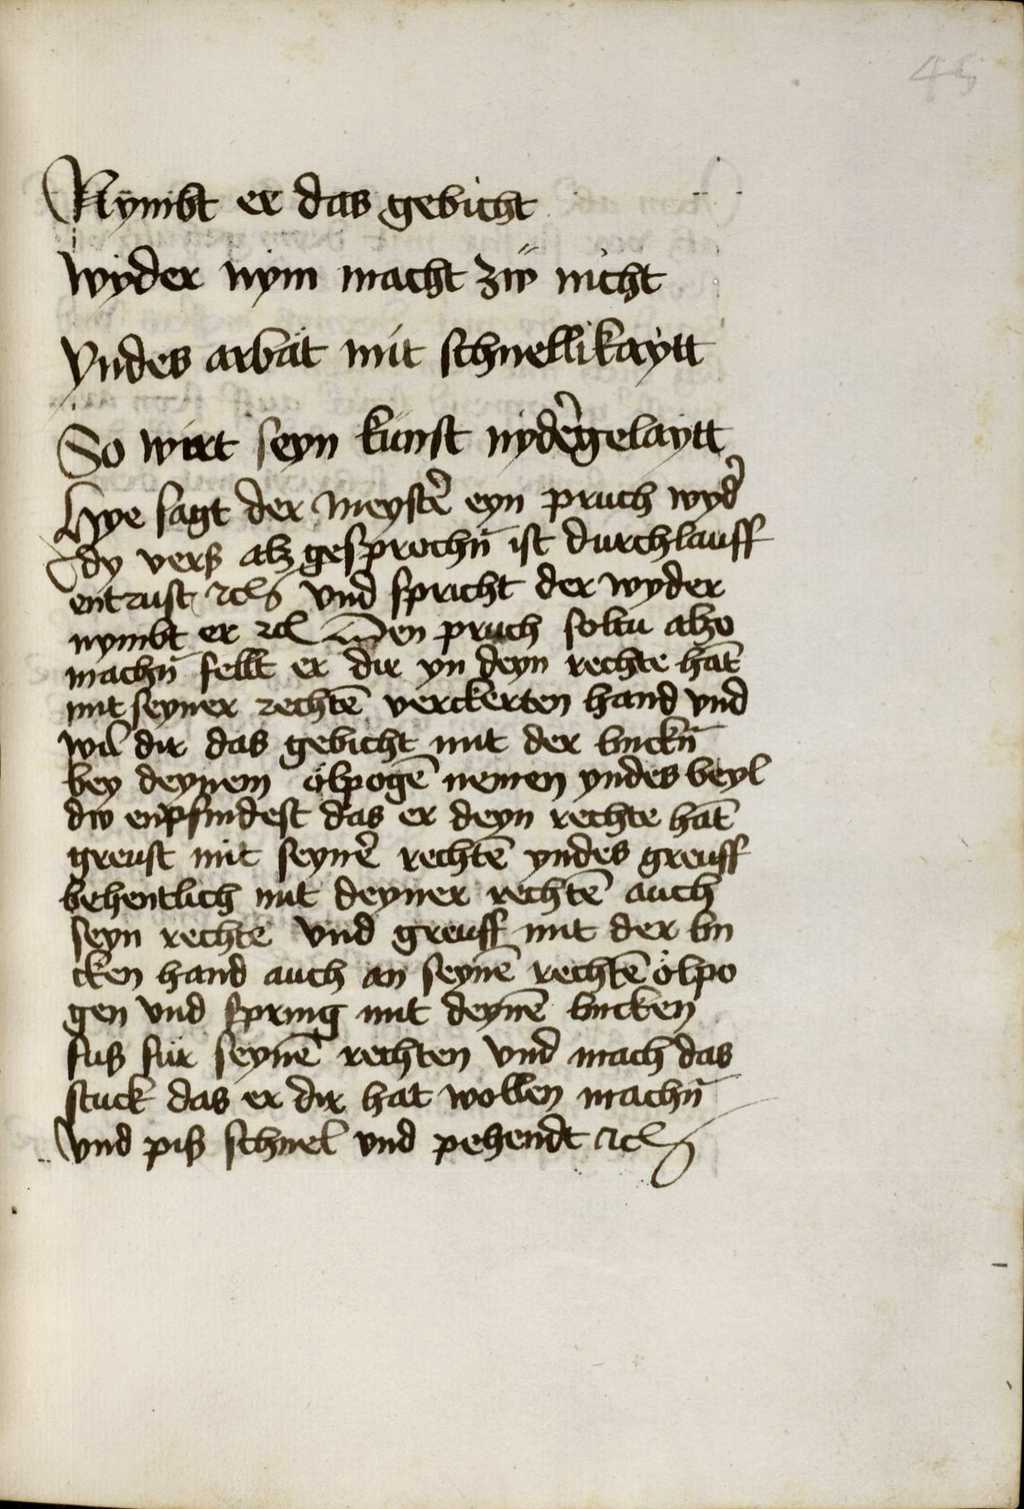 45
Nymbt er das gebicht
wyder nym macht zw nicht
Yndes arbät mit schnellikaytt
So wirt seyn kunst nyder̃gelaytt
Hye sagt der meyster̃ eyn pruch wyd̃
dy verß alz gesprochñ ist durchlauff
entrust ꝛcꝭ Vnd spricht der wyder
nymbt er ꝛc Den pruch soltu alzo
machñ fellt er dir yn deyn rechte hãt
mit seyner rechtẽ verckerten hand vnd
wil dir das gebicht mit der linckñ
bey deynem ölpogẽ nemen yndes beyl
dw enpfindest das er deyn rechte hãt
greust mit seyner̃ rechtẽ yndes greuff
behentlich mit deyner rechtẽ auch
seyn rechte Vnd greuff mit der lin
cken hand auch an seynẽ rechtẽ ölpo
gen vnd spring mit deynẽ lincken
fuß für seynẽ rechten Vnd mach das
stuck das er dir hat wollen machñ
Vnd piß schnel vnd pehendt ꝛcꝭ